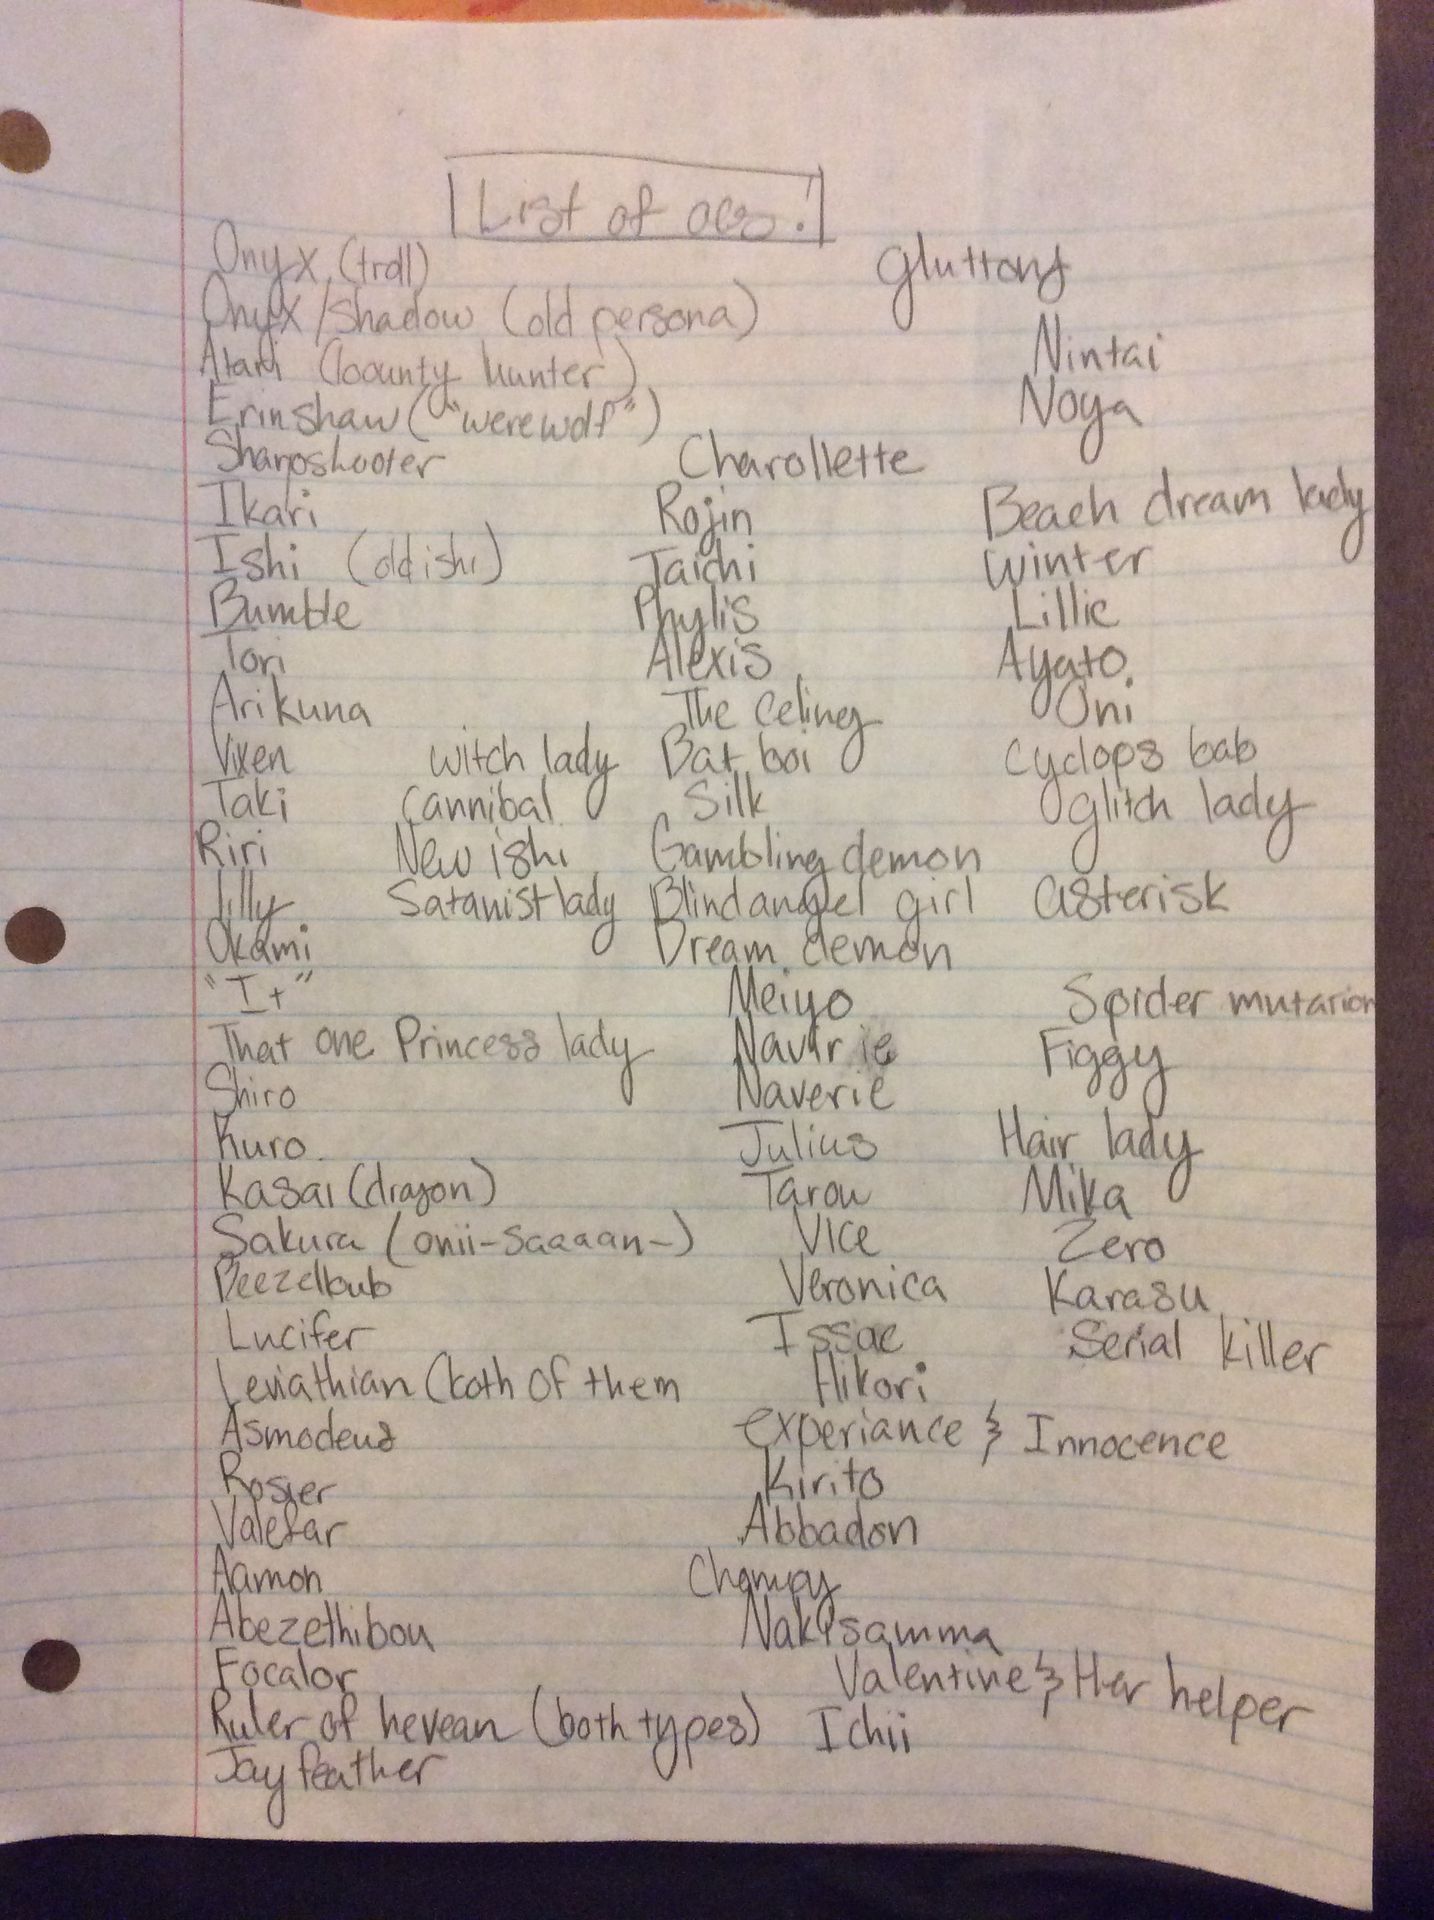 List of ocs!
Onyx (troll)
Onyx/Shadow (old persona)
(bounty hunter)
Erinshaw ("werewolf")
Sharpshooter
Ikari
Ishi (old ishi)
Bumble
Tori
Arikuna
Vixen
Taki
Riri
Jilly
Okami
"It"
That one Princess lady
Shiro
Kuro
Kasai (dragon)
Sakura (onii-saaaan-)
Beezelbub
Lucifer
Leviathian (both of them
Asmodeus
Rosier
Valefar
Aamon
Abezethibou
Focalor
Ruler of hevean (both types)
Jayfeather
witch lady
Cannibal
New ishi
Satanist lady
Charollette
Rojin
Taichi
Phylis
Alexis
The Celing
Bat boi
Silk
Gambling demon
Blind angel girl
Dream demon
Meiyo
Navirie
Naverie
Julius
Tarou
Vice
Veronica
Issac
Hikori
experiance & Innocence
Kirito
Abbadon
Chompy
Nakisamma
Valentine & Her helper
Ichii
Gluttony
Nintai
Noya
Beach dream lady
Winter
Lillie
Ayato
Oni
Cyclops bab
Glitch lady
asterisk
Spider mutation
Figgy
Hair lady
Mika
Zero
Karasu
Serial killer